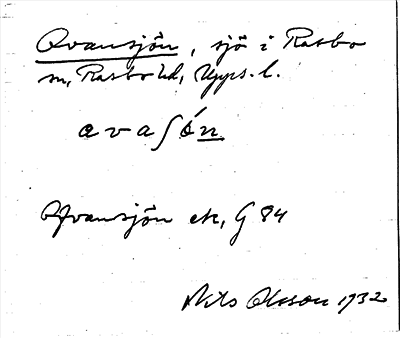 Ovansjön, sjö i Rasbo
sn, Rasbo hd, Upps. l.
avaʃǿn
Ofvansjön ek, G 84
Nils Olsson 1932